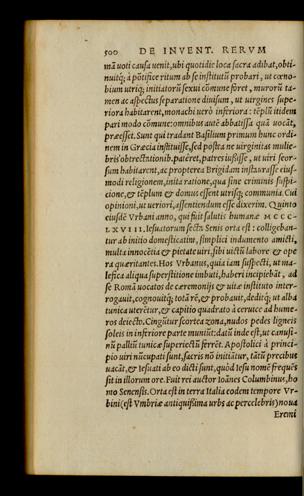 500 DE INVENT. RERVM
mā uoti causa uenit, ubi quotidie loca sacra adibat, obti-
nuitq́; à pōtifice ritum ab se institutū probari, ut cœno-
bium utriq; initiatorū sexui cōmune foret, murorū ta-
men ac aspectus separatione diuisum, ut uirgines supe-
riora habitarent, monachi uerò inferiora: tēplū itidem
pari modo cōmune: omnibus autē abbatissa quā uocāt,
præesset. Sunt qui tradant Basilium primum hunc ordi-
nem in Græcia instituisse, sed postea ne uirginitas mulie-
bris obtrectationib. pateret, patres iussisse, ut uiri seor-
sum habitarent, ac propterea Brigidam instaurasse eius-
modi religionem, inita ratione, qua sine criminis suspi-
cione, & tēplum & domus essent utrisq; communia. Cui
opinioni, ut ueriori, assentiendum esse dixerim. Quinto
eiusdē Vrbani anno, qui fuit salutis humanæ M CCC
LXVIII. Iesuatorum secta Senis orta est: colligeban-
tur ab initio domesticatim, simplici indumento amicti,
multa innocētia & pietate uiri, sibi uictū labore & ope
ra quæritantes. Hos Vrbanus, quia iam suspecti, ut ma-
lefica aliqua superstitione imbuti, haberi incipiebāt, ad
se Romā uocatos de cæremonijs & uitæ instituto inter-
rogauit, cognouitq́; totā rē, & probauit, deditq́; ut alba
tunica uterētur, & capitio quadrato à ceruice ad hume-
ros deiecto. Cingūtur scortea zona, nudos pedes ligneis
soleis in inferiore parte muniūt: datū inde est, ut canusi-
nū palliū tunicæ superiectū ferrēt. Apostolici à princi-
pio uiri nūcupati sunt, sacris nō initiātur, tātū precibus
uacāt, & Iesuati ab eo dicti sunt, quòd Iesu nomē frequēs
sit in illorum ore. Fuit rei auctor Ioānes Columbinus, ho
mo Senensis. Orta est in terra Italia eodem tempore Vr-
bini (est Vmbriæ antiquissima urbs ac percelebris) noua
Eremi